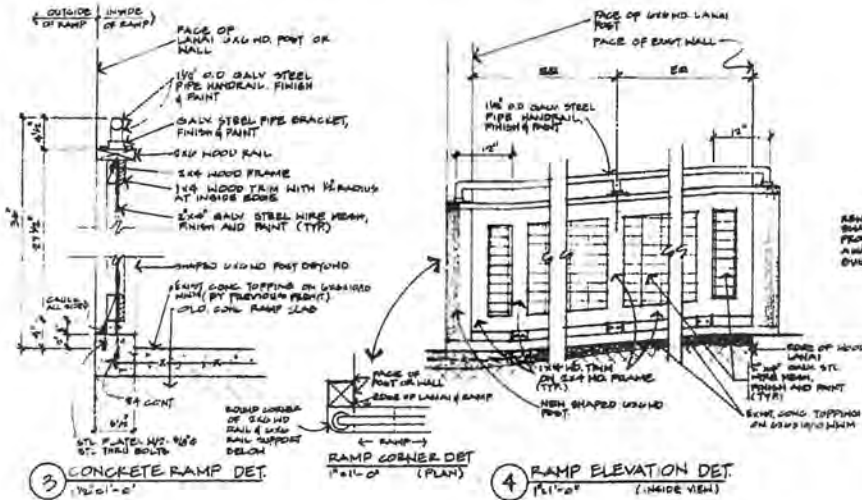 OUTSIDE
OF RAMP
INSIDE
OF RAMP
FACE OF
LANAI 6X6 WD. POST OR
WALL
1 1/2" O.D GALV STEEL
PIPE HANDRAIL. FINISH
& PAINT
GALV STEEL PIPE BRACKET,
FINISH & PAINT
2X6 WOOD RAIL
2X4 WOOD FRAME
1X4 WOOD TRIM WITH 1/2" RADIUS
AT INSIDE EDGE
2"X4" GALV STEEL WIRE MESH,
FINISH AND PAINT (TYP.)
SHAPED 6X6 WD POST BEYOND
EXIST CONC TOPPING ON 6X6X10/10
WWM (BY PREVIOUS PERMIT)
OLD CONC RAMP SLAB
CAULK
ALL SIDES
36"
4 1/2"
#4 CONT.
5 1/2"
STL PLATE W/2- 5/8"Ø
STL THRU BOLTS
3 CONCRETE RAMP DET.
1 1/2"=1'-0"
FACE OF
POST OR WALL
EDGE OF LANAI & RAMP
ROUND CORNER
OF 2X6 WD
RAIL & 6X6
RAIL SUPPORT
BELOW
RAMP
RAMP CORNER DET
1"=1'-0" (PLAN)
FACE OF 6X6 WD. LANAI
POST
FACE OF EXIST WALL
EQ
EQ
1 1/2" O.D GALV STEEL
PIPE HANDRAIL,
FINISH & PAINT
12"
12"
1X4 WD. TRIM
ON 2X4 WD. FRAME
(TYP.)
NEW SHAPED 6X6 WD
POST.
EDGE OF WOOD
LANAI
2"X4" GALV STL
WIRE MESH,
FINISH AND PAINT
(TYP)
EXIST. CONC. TOPPING
ON 6X6X10/10 WWM
4 RAMP ELEVATION DET.
1"=1'-0" (INSIDE VIEW)